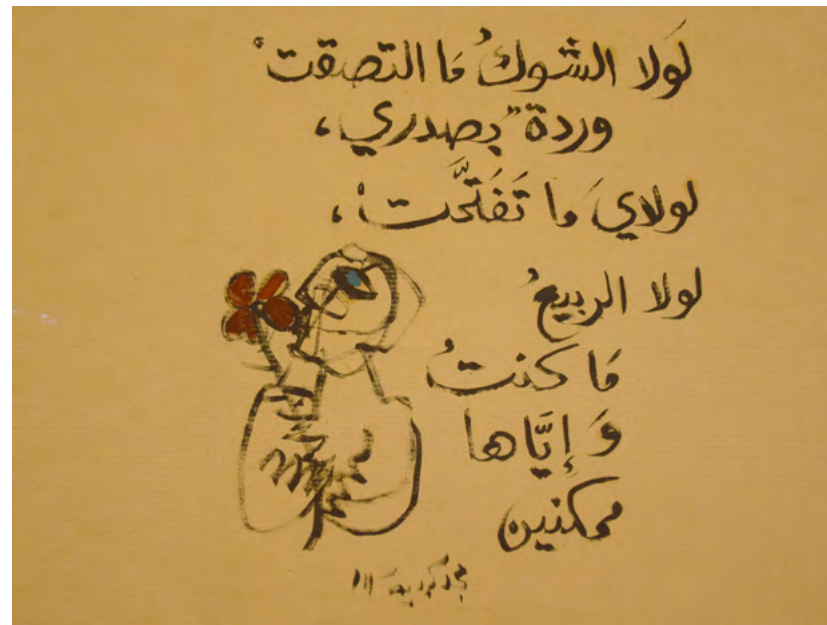 لَولا الشوكُ مَا التصقتْ
وردةٌ بصدري،
لولايَ ما تَفَتَّحتْ،
لولا الربيعُ
مَا كنتُ
وَ إيَّاها
ممكنين